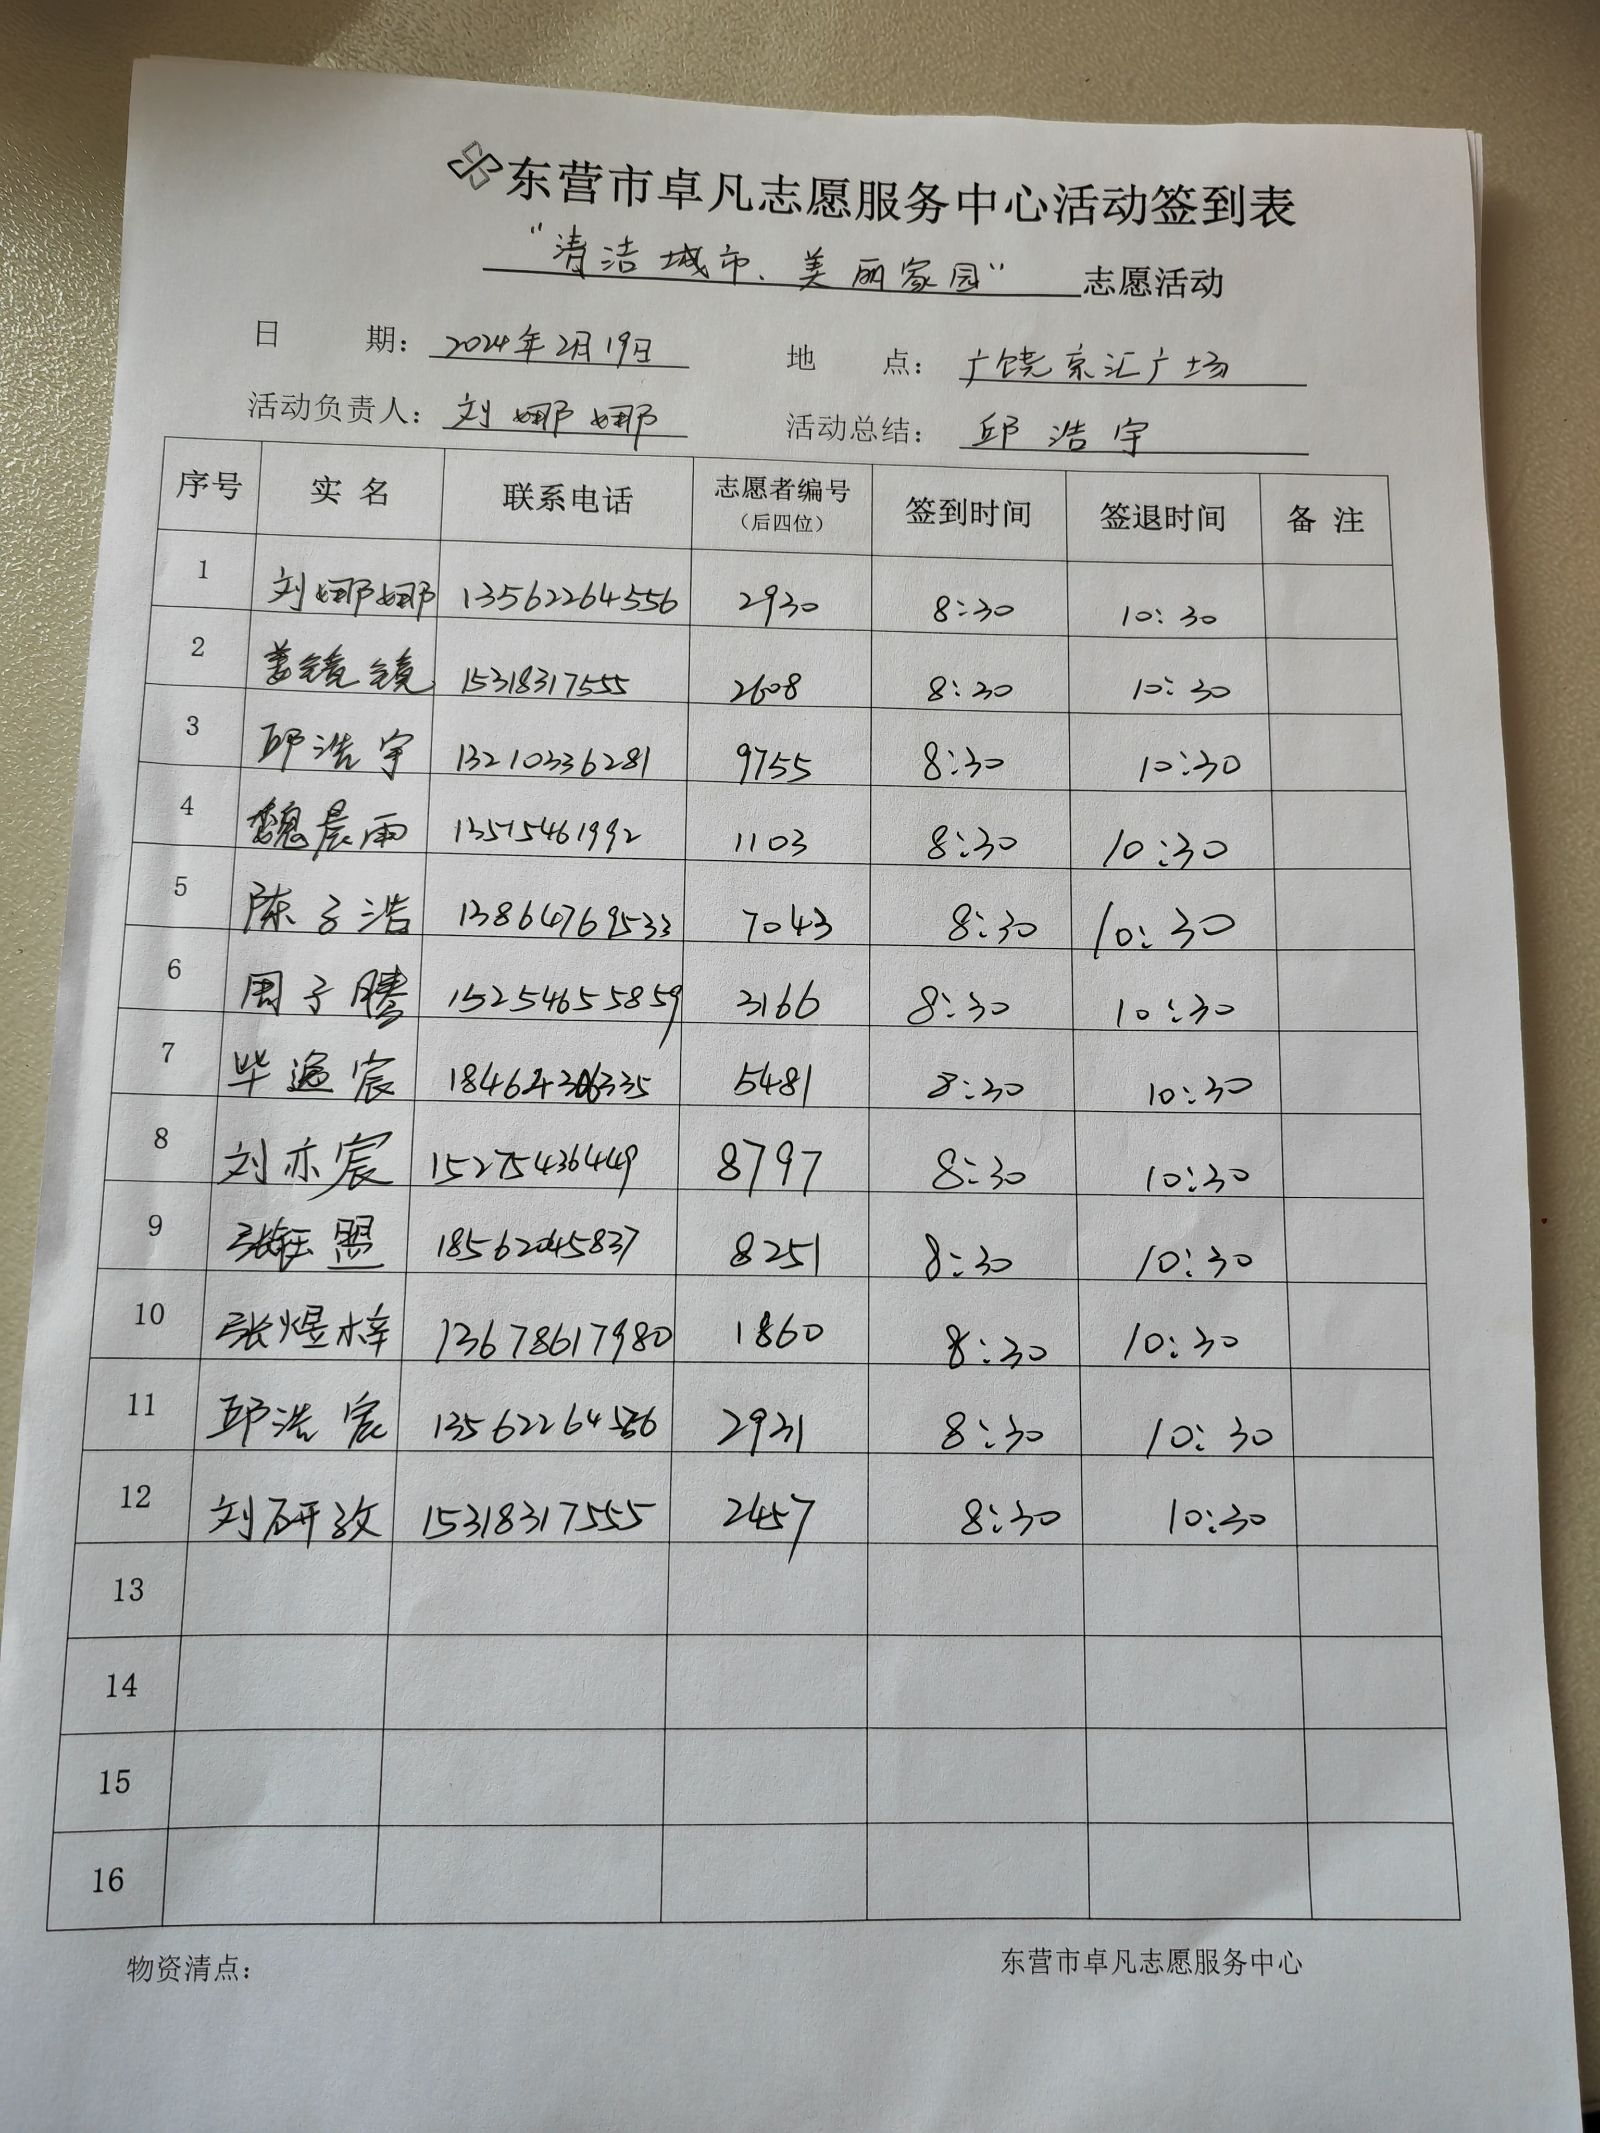 东营市卓凡志愿服务中心活动签到表
“清洁城市、美丽家园” 志愿活动
日 期：2024年2月19日 地 点：广饶京汇广场
活动负责人：刘娜娜 活动总结：邱浩宇
序号 实名 联系电话 志愿者编号（后四位） 签到时间 签退时间 备注
1 刘娜娜 13562264556 2930 8:30 10:30
2 姜镜镜 15318317555 2608 8:30 10:30
3 邱浩宇 13210336281 9755 8:30 10:30
4 魏晨雨 13515461992 1103 8:30 10:30
5 陈子浩 13864769533 7043 8:30 10:30
6 周子腾 15254655859 3166 8:30 10:30
7 毕 宸 5481 8:30 10:30
8 刘亦宸 15275436449 8797 8:30 10:30
9 张钰盟 18562045837 8251 8:30 10:30
10 张煜梓 13678617980 1860 8:30 10:30
11 邱浩宸 13562264556 2931 8:30 10:30
12 刘研孜 15318317555 2457 8:30 10:30
13
14
15
16
物资清点： 东营市卓凡志愿服务中心